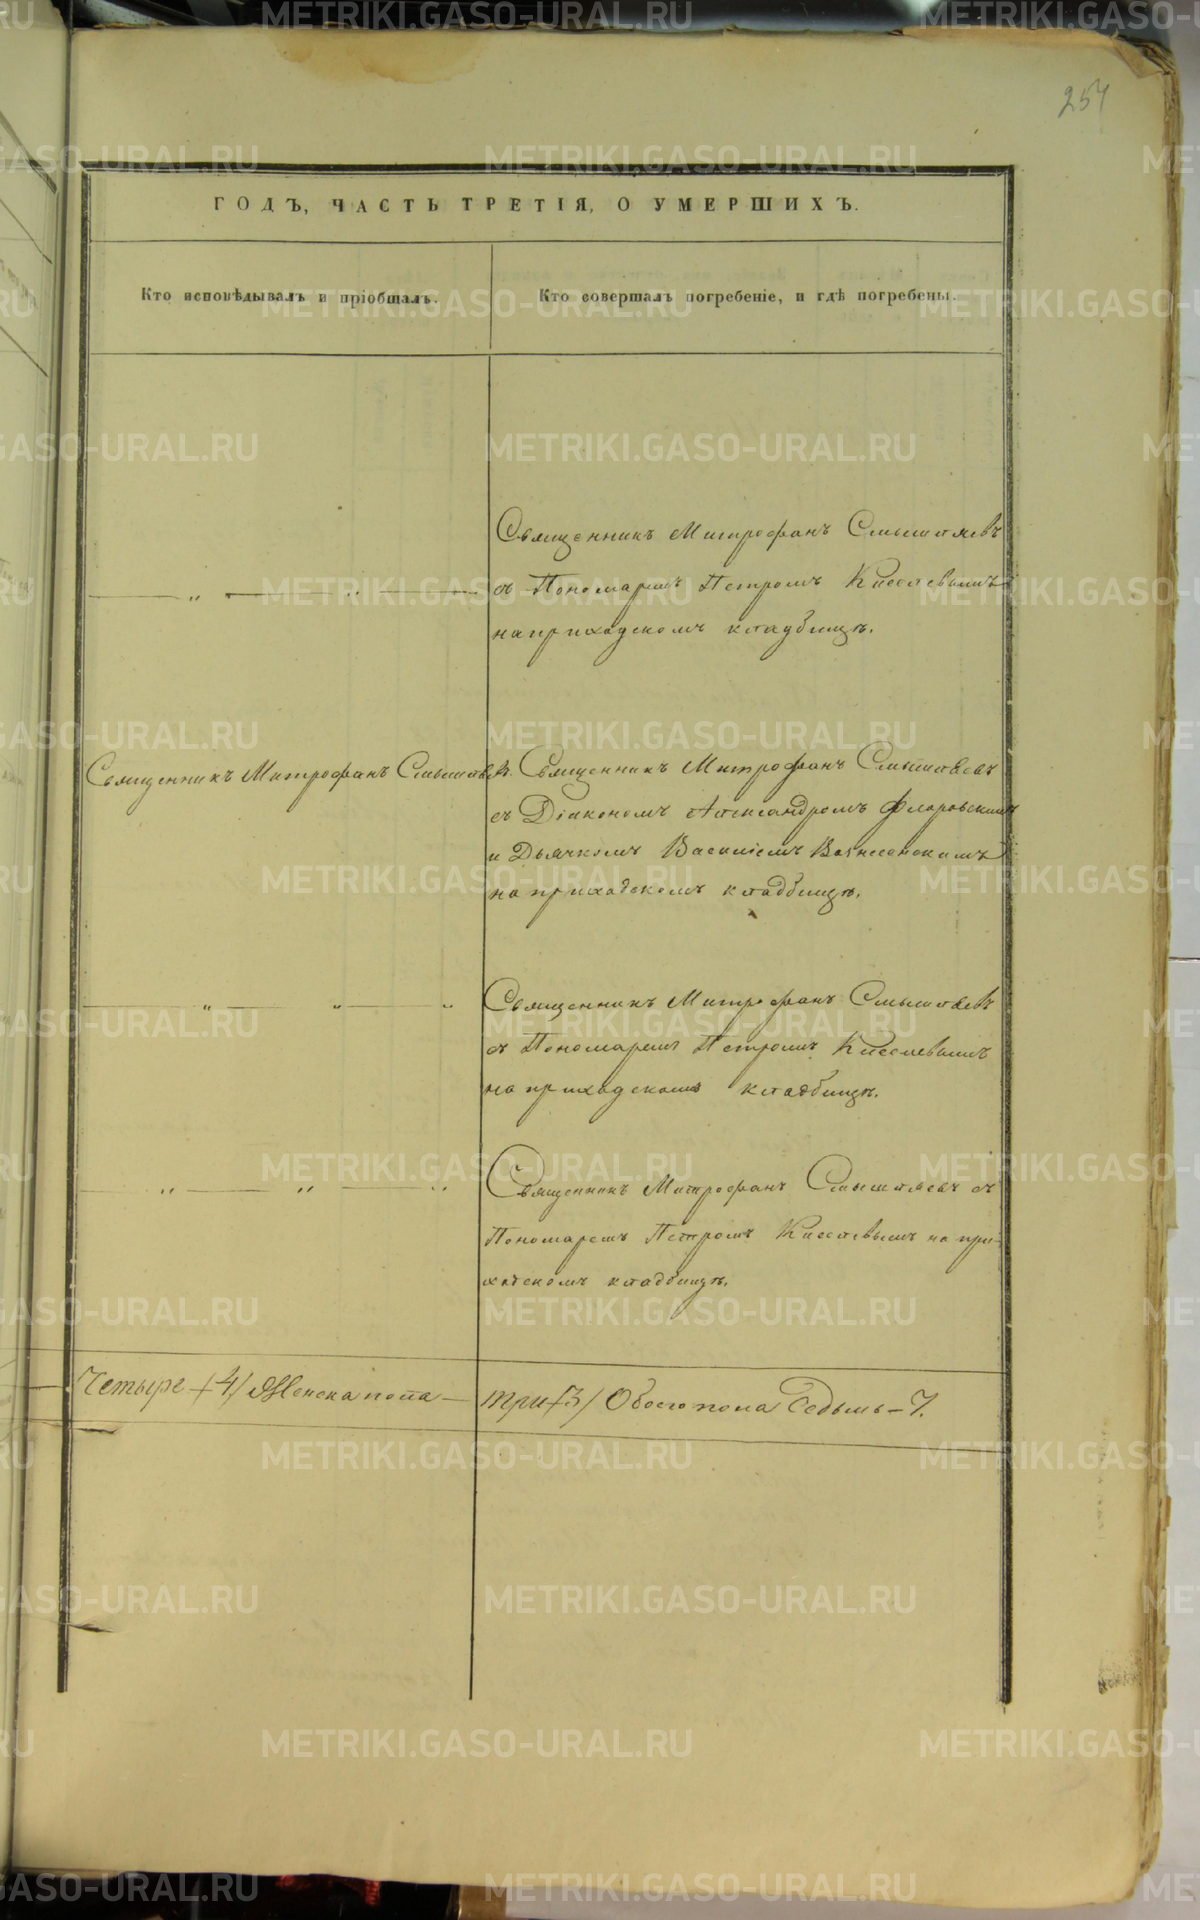 257
ГОДЪ, ЧАСТЬ ТРЕТІЯ, О УМЕРШИХЪ.
Кто исповѣдывалъ и пріобщалъ.
Кто совершалъ погребеніе, и гдѣ погребены.
Священникъ Митрофанъ Смышляевъ
съ Пономаремъ Петромъ Киселевымъ
на приходскомъ кладбищѣ.
Священникъ Митрофанъ Смышляевъ.
Священникъ Митрофанъ Смышляевъ
съ Діакономъ Александромъ Флоровскимъ
и Дьячкомъ Василіемъ Вознесенскимъ
на приходскомъ кладбищѣ.
Священникъ Митрофанъ Смышляевъ
съ Пономаремъ Петромъ Киселевымъ
на приходскомъ кладбищѣ.
Священникъ Митрофанъ Смышляевъ съ
Пономаремъ Петромъ Киселевымъ на при-
ходскомъ кладбищѣ.
Четыре /4/ Женска пола — три /3/ Обоего пола Седьмь – 7.
METRIKI.GASO-URAL.RU